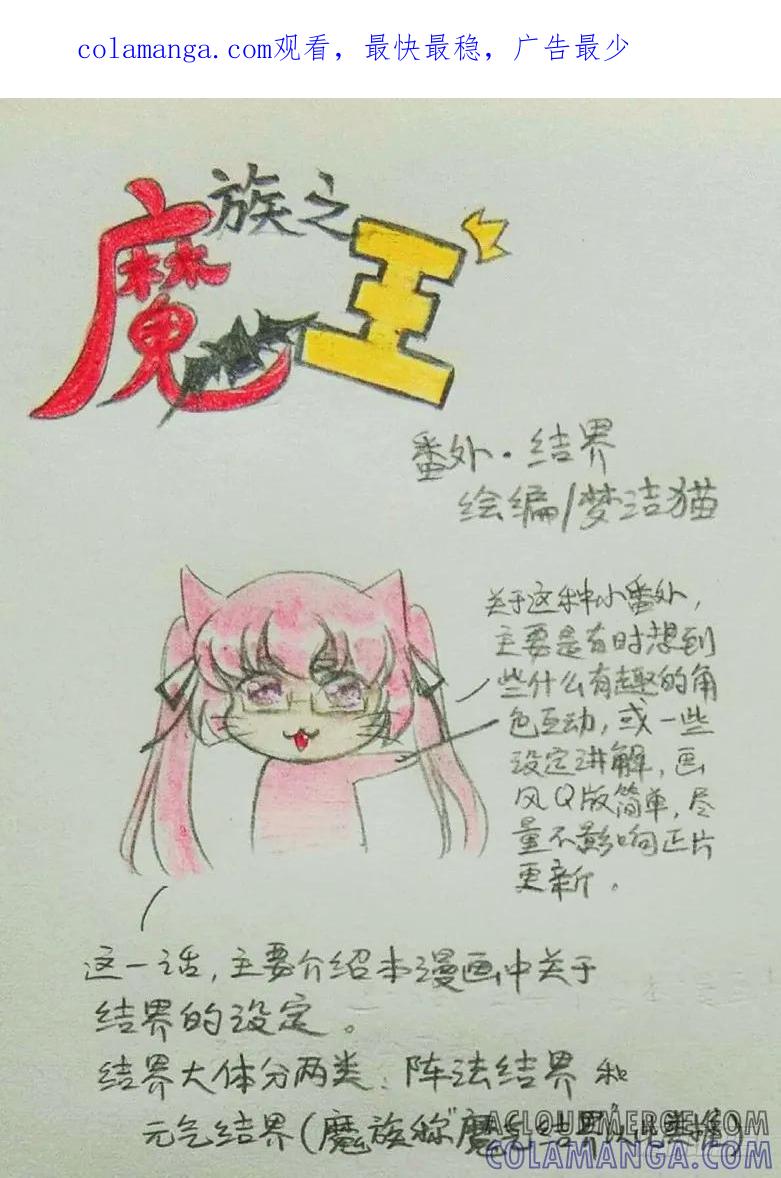 colamanga.com观看，最快最稳，广告最少
魔族之王
番外·结界
绘编/梦洁猫
关于这种小番外，
主要是有时想到
些什么有趣的角
色互动，或一些
设定讲解，画
风Q版简单，尽
量不影响正片
更新。
这一话，主要介绍本漫画中关于
结界的设定。
结界大体分两类：阵法结界和
元气结界（魔族称“魔气结界”，以此类推）
ACLOUDMERGE.COM
COLAMANGA.COM